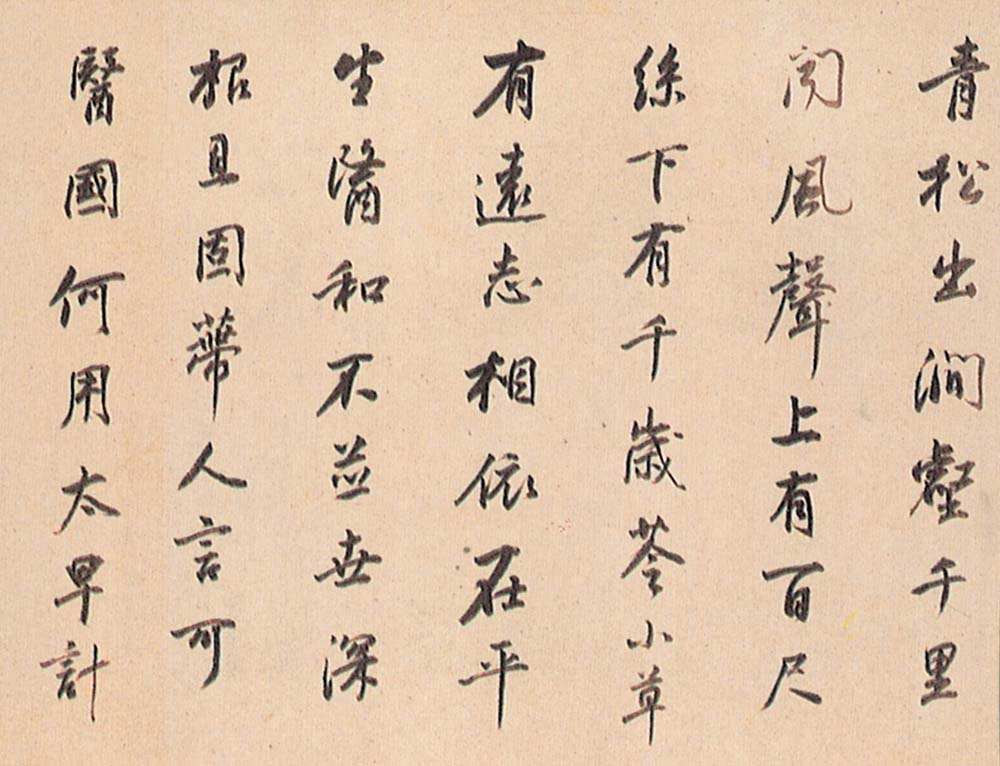 青松出澗壑千里
闻風聲上有百尺
絲下有千歲苓小草
有遠志相依在平
生醫和不並世深
根且固蒂人言可
醫國何用太早計